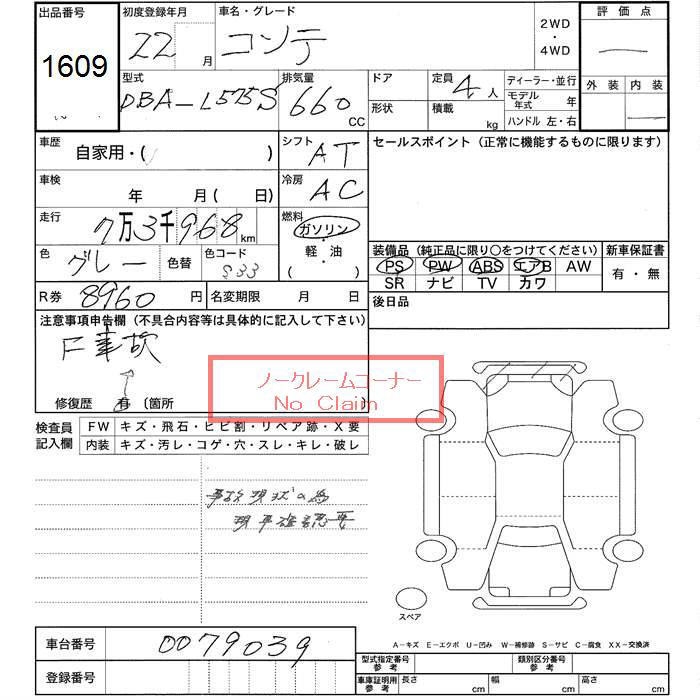 出品番号 初度登録年月 車名・グレード 評価点
1609 22 月 コンテ 2WD・4WD
型式 排気量 ドア 定員 4 人 ディーラー・並行 外装 内装
DBA-L575S 660 CC 形状 積載 kg モデル年式 年
ハンドル 左・右
車歴 自家用・( ) シフト AT セールスポイント(正常に機能するものに限ります)
車検 年 月( 日) 冷房 AC
走行 7万3千968km 燃料 ガソリン・軽・油 ( )
色 グレー 色替 色コード S33 装備品(純正品に限り〇をつけてください) 新車保証書
PS PW ABS エアB AW 有・無
SR ナビ TV カワ
R券 8960 円 名変期限 月 日 後日品
注意事項申告欄(不具合内容等は具体的に記入して下さい)
F事故
ノークレームコーナー
No Claim
修復歴 有 〔箇所
検査員記入欄 FW キズ・飛石・ヒビ割・リペア跡・X要
内装 キズ・汚レ・コゲ・穴・スレ・キレ・破レ
事故現状の為
現車確認要
スペア
車台番号 0079039 A-キズ E-エクボ U-凹み W-補修跡 S-サビ C-腐食 XX-交換済
型式指定番号参考 類別区分番号参考
登録番号 車庫証明用参考 長さ cm 幅 cm 高さ cm